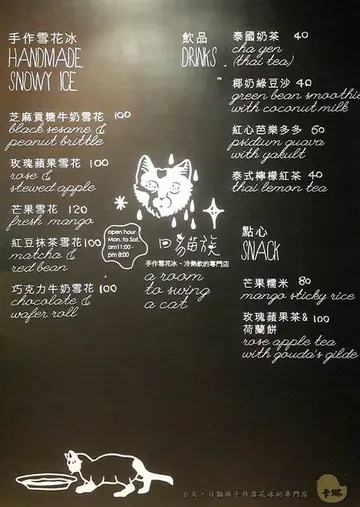 手作雪花冰
HANDMADE
SNOWY ICE
芝麻貢糖牛奶雪花 100
black sesame &
peanut brittle
玫瑰蘋果雪花 100
rose &
stewed apple
芒果雪花 120
fresh mango
紅豆抹茶雪花 100
matcha &
red bean
巧克力牛奶雪花 100
chocolate &
wafer roll
open hour
Mon. to Sat.
am11:00-
pm 8:00
貓族
手作雪花冰、冷熱飲的專門店
a room
to swing
a cat
飲品
DRINKS
泰國奶茶 40
cha yen
(thai tea)
椰奶綠豆沙 40
green bean smoothie
with coconut milk
紅心芭樂多多 60
psidium guava
with yakult
泰式檸檬紅茶 40
thai lemon tea
點心
SNACK
芒果糯米 80
mango sticky rice
玫瑰蘋果茶& 100
荷蘭餅
rose apple tea
with gouda's gilde
台北。日貓族手作雪花冰的專門店
卡琳